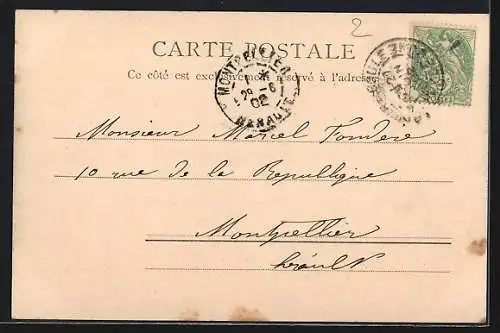 2
CARTE POSTALE
Ce côté est exclusivement réservé à l'adresse
MONTPELLIER
29 - 6
02
HERAULT
Monsieur Marcel Fondere
10 rue de la Republique
Montpellier
Hérault